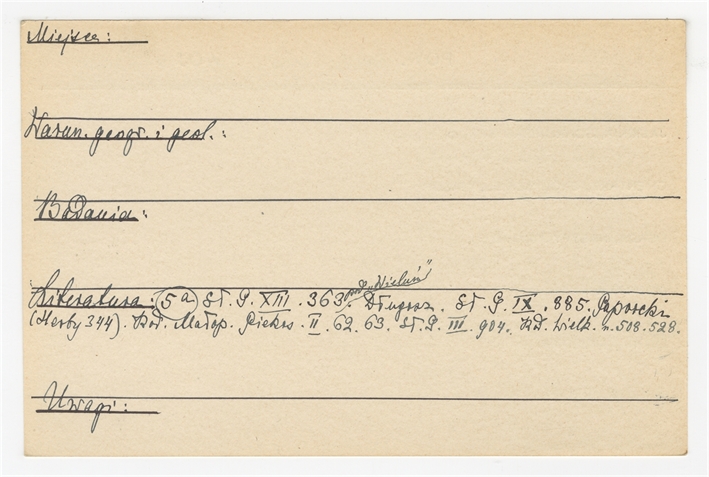 Miejsce:
Warun. geogr. i geol.:
Badania:
pod „Wieluń"
Literatura: 5a Sł. G. XIII. 363. Długosz. Sł. G. IX. 885. Paprocki
(Herby 344). Kod. Małop. Piekos. II. 62. 63. Sł. G. III. 904. Kd. Wielk. n. 508. 528.
Uwagi: